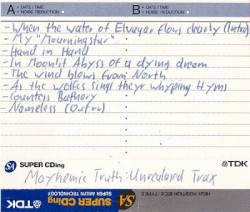 A DATE / TIME
NOISE REDUCTION
B DATE / TIME
NOISE REDUCTION
- When the water of Elivagar flows clearly (Intro)
- My "Mourningstar"
- Hand in Hand
- In Moonlit Abyss of a dying dream
- The wind blows from North
- As the wolfes sings theyr whyping Hyms
- Countess Bathory
- Nameless (Outro)
SA SUPER CDing
TDK
Mayhemic Truth: Unrealored Trax
TDK
SUPER CDing
SUPER AVILYN TECHNOLOGY
SA
HIGH POSITION IEC II / TYPE II